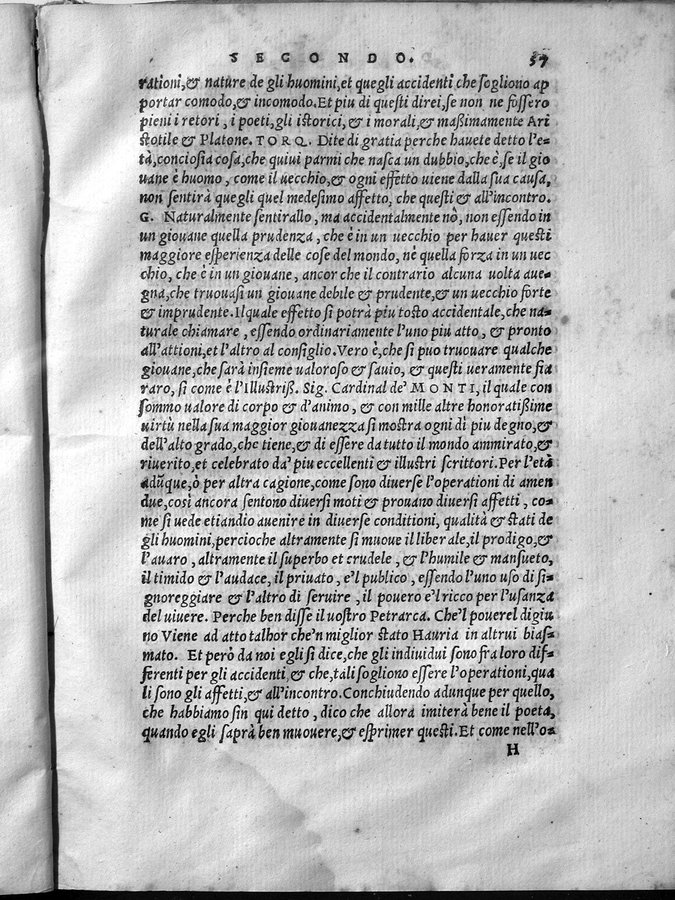 SECONDO. 57
rationi,& nature de gli huomini,et quegli accidenti che sogliono ap
portar comodo,& incomodo.Et piu di questi direi,se non ne fossero
pieni i retori , i poeti,gli istorici,& i morali,& maßimamente Ari
stotile & Platone. TORQ. Dite di gratia perche hauete detto l'e-
tà,conciosia cosa,che quiui parmi che nasca un dubbio,che è,se il gio
uane è huomo , come il uecchio,& ogni effetto uiene dalla sua causa,
non sentirà quegli quel medesimo affetto, che questi & all'incontro.
G. Naturalmente sentirallo , ma accidentalmente nō, non essendo in
un giouane quella prudenza , che è in un uecchio per hauer questi
maggiore esperienza delle cose del mondo, nè quella forza in un uec
chio, che è in un giouane, ancor che il contrario alcuna uolta aue-
gna,che truouasi un giouane debile & prudente,& un uecchio forte
& imprudente.Il quale effetto si potrà piu tosto accidentale,che na-
turale chiamare , essendo ordinariamente l'uno piu atto , & pronto
all'attioni,et l'altro al consiglio.Vero è,che si puo truouare qualche
giouane,che sarà insieme ualoroso & sauio, & questi ueramente sia
raro, si come è l'Illustriß. Sig. Cardinal de' MONTI, il quale con
sommo ualore di corpo & d'animo , & con mille altre honoratißime
uirtù nella sua maggior giouanezza si mostra ogni dì piu degno,&
dell'alto grado,che tiene,& di essere da tutto il mondo ammirato,&
riuerito,et celebrato da' piu eccellenti & illustri scrittori.Per l'età
adūque,ò per altra cagione,come sono diuerse l'operationi di amen
due,così ancora sentono diuersi moti & prouano diuersi affetti , co-
me si uede etiandio auenire in diuerse conditioni, qualità & stati de
gli huomini,percioche altramente si muoue il liberale,il prodigo,&
l'auaro , altramente il superbo et crudele , & l'humile & mansueto,
il timido & l'audace, il priuato , e'l publico , essendo l'uno uso di si-
gnoreggiare & l'altro di seruire , il pouero e'l ricco per l'usanza
del uiuere. Perche ben disse il uostro Petrarca. Che'l pouerel digiu
no Viene ad atto talhor che'n miglior stato Hauria in altrui bias-
mato. Et però da noi egli si dice,che gli indiuidui sono fra loro dif-
ferenti per gli accidenti,& che,tali sogliono essere l'operationi,qua
li sono gli affetti,& all'incontro.Conchiudendo adunque per quello,
che habbiamo sin qui detto , dico che allora imiterà bene il poeta,
quando egli saprà ben muouere,& esprimer questi.Et come nell'o-
H